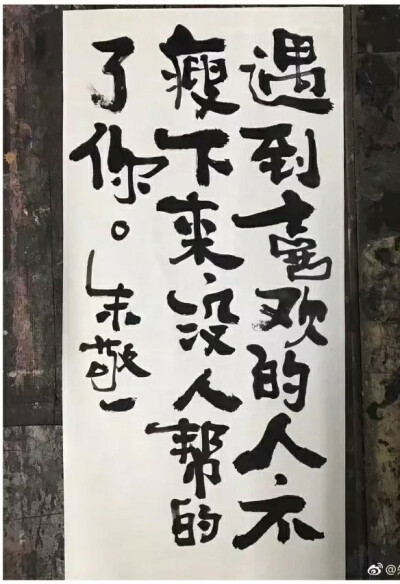 遇到喜欢的人、不
瘦下来、没人帮的
了你。朱敬一